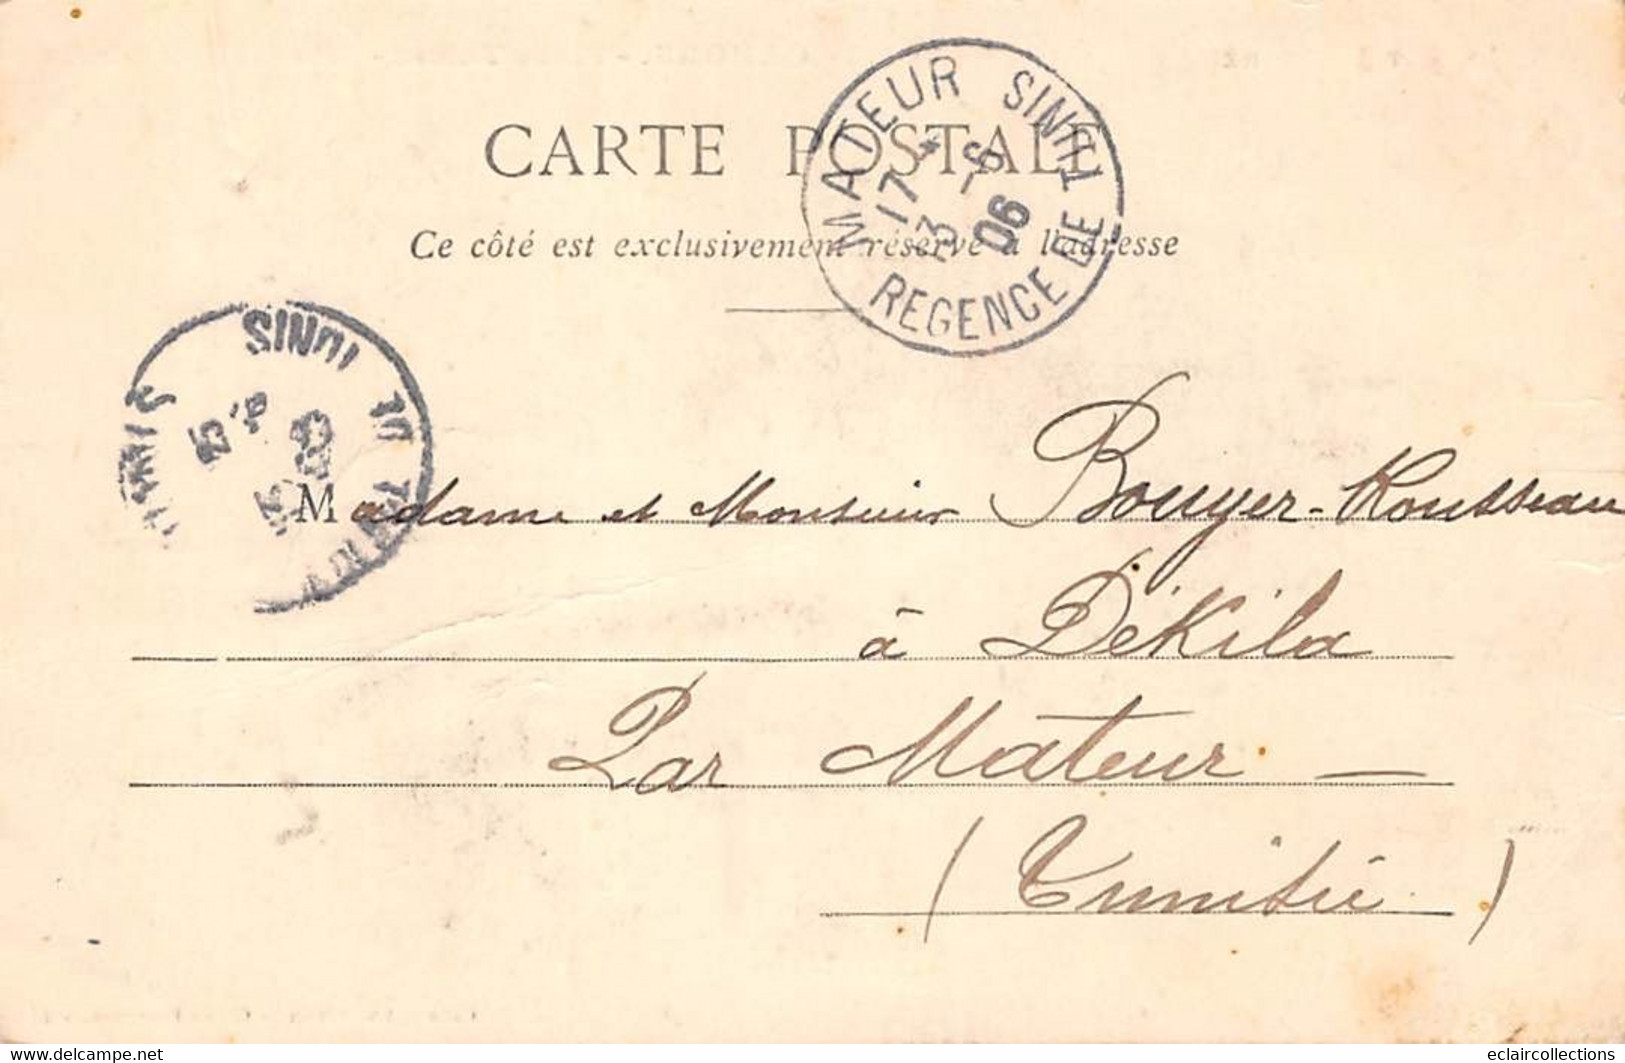 CARTE POSTALE
Ce côté est exclusivement réservé à l'adresse
MATEUR
17 *
13 -6
06
REGENCE DE TUNIS
TUNIS
Madame et Monsieur Bouyer-Rousseau
à Dékila
Par Mateur —
(Tunisie)
www.delcampe.net
eclaircollections